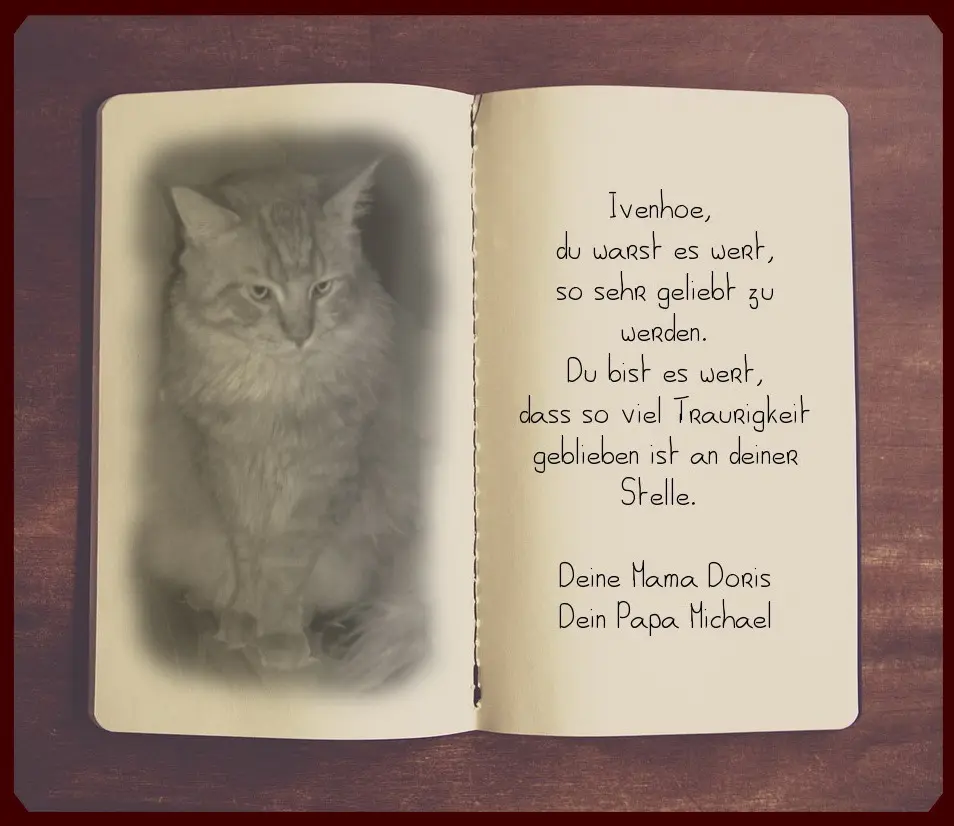 Ivenhoe,
du warst es wert,
so sehr geliebt zu
werden.
Du bist es wert,
dass so viel Traurigkeit
geblieben ist an deiner
Stelle.
Deine Mama Doris
Dein Papa Michael